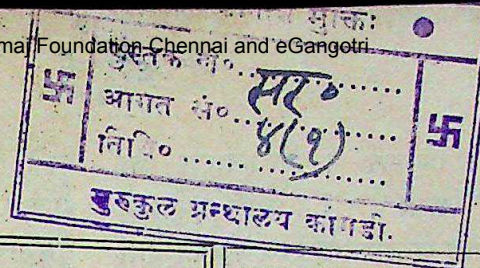 मुक्तिः
maj Foundation Chennai and eGangotri
पुस्तक सं०
आगत सं०
४(१)
तिथि०
गुरुकुल ग्रन्थालय कांगडी.